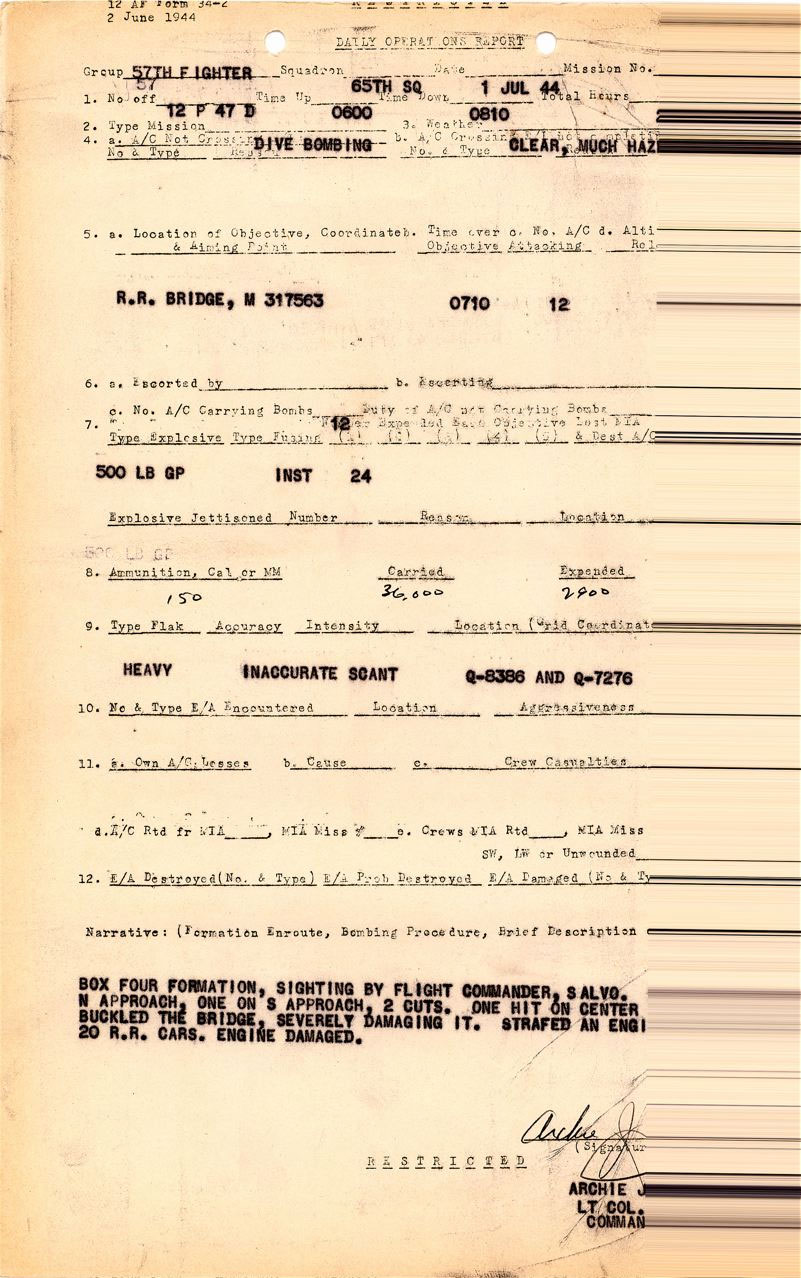 12 AF Form 34-2 RESTRICTED
2 June 1944
DAILY OPERATIONS REPORT
Group 57TH FIGHTER Squadron 65TH SQ Date 1 JUL 44 Mission No.
57
1. No off 12 P 47 D Time Up 0600 Time Down 0810 Total Hours
2. Type Mission DIVE BOMBING 3. Weather CLEAR, MUCH HAZ
4. a. A/C Not Crossing b. A/C Crossing
No & Type No. & Type
5. a. Location of Objective, Coordinate b. Time over c. No. A/C d. Alti
& Aiming Point Objective Attacking Rel
R.R. BRIDGE, M 317563 0710 12
6. a. Escorted by b. Escorting
c. No. A/C Carrying Bombs 12 Duty of A/C not Carrying Bombs
7. Number Expended Each Objective Lost MIA
Type Explosive Type Fuzing (1) (2) (3) (4) (5) & Dest A/C
500 LB GP INST 24
Explosive Jettisoned Number Reason Location
500 LB GP
8. Ammunition, Cal or MM Carried Expended
150 36,000 2900
9. Type Flak Accuracy Intensity Location (Grid Coordinat
HEAVY INACCURATE SCANT Q-8386 AND Q-7276
10. No & Type E/A Encountered Location Aggressiveness
11. a. Own A/C Losses b. Cause c. Crew Casualties
d. A/C Rtd fr MIA , MIA Miss # e. Crews MIA Rtd , MIA Miss
SW, LW or Unwounded
12. E/A Destroyed(No. & Type) E/A Prob Destroyed E/A Damaged (No & Ty
Narrative: (Formation Enroute, Bombing Procedure, Brief Description
BOX FOUR FORMATION, SIGHTING BY FLIGHT COMMANDER, SALVO.
N APPROACH, ONE ON S APPROACH, 2 CUTS. ONE HIT ON CENTER
BUCKLED THE BRIDGE, SEVERELY DAMAGING IT. STRAFED AN ENGI
20 R.R. CARS. ENGINE DAMAGED.
Archie J
(Signatur
RESTRICTED
ARCHIE J
LT COL.
COMMAN